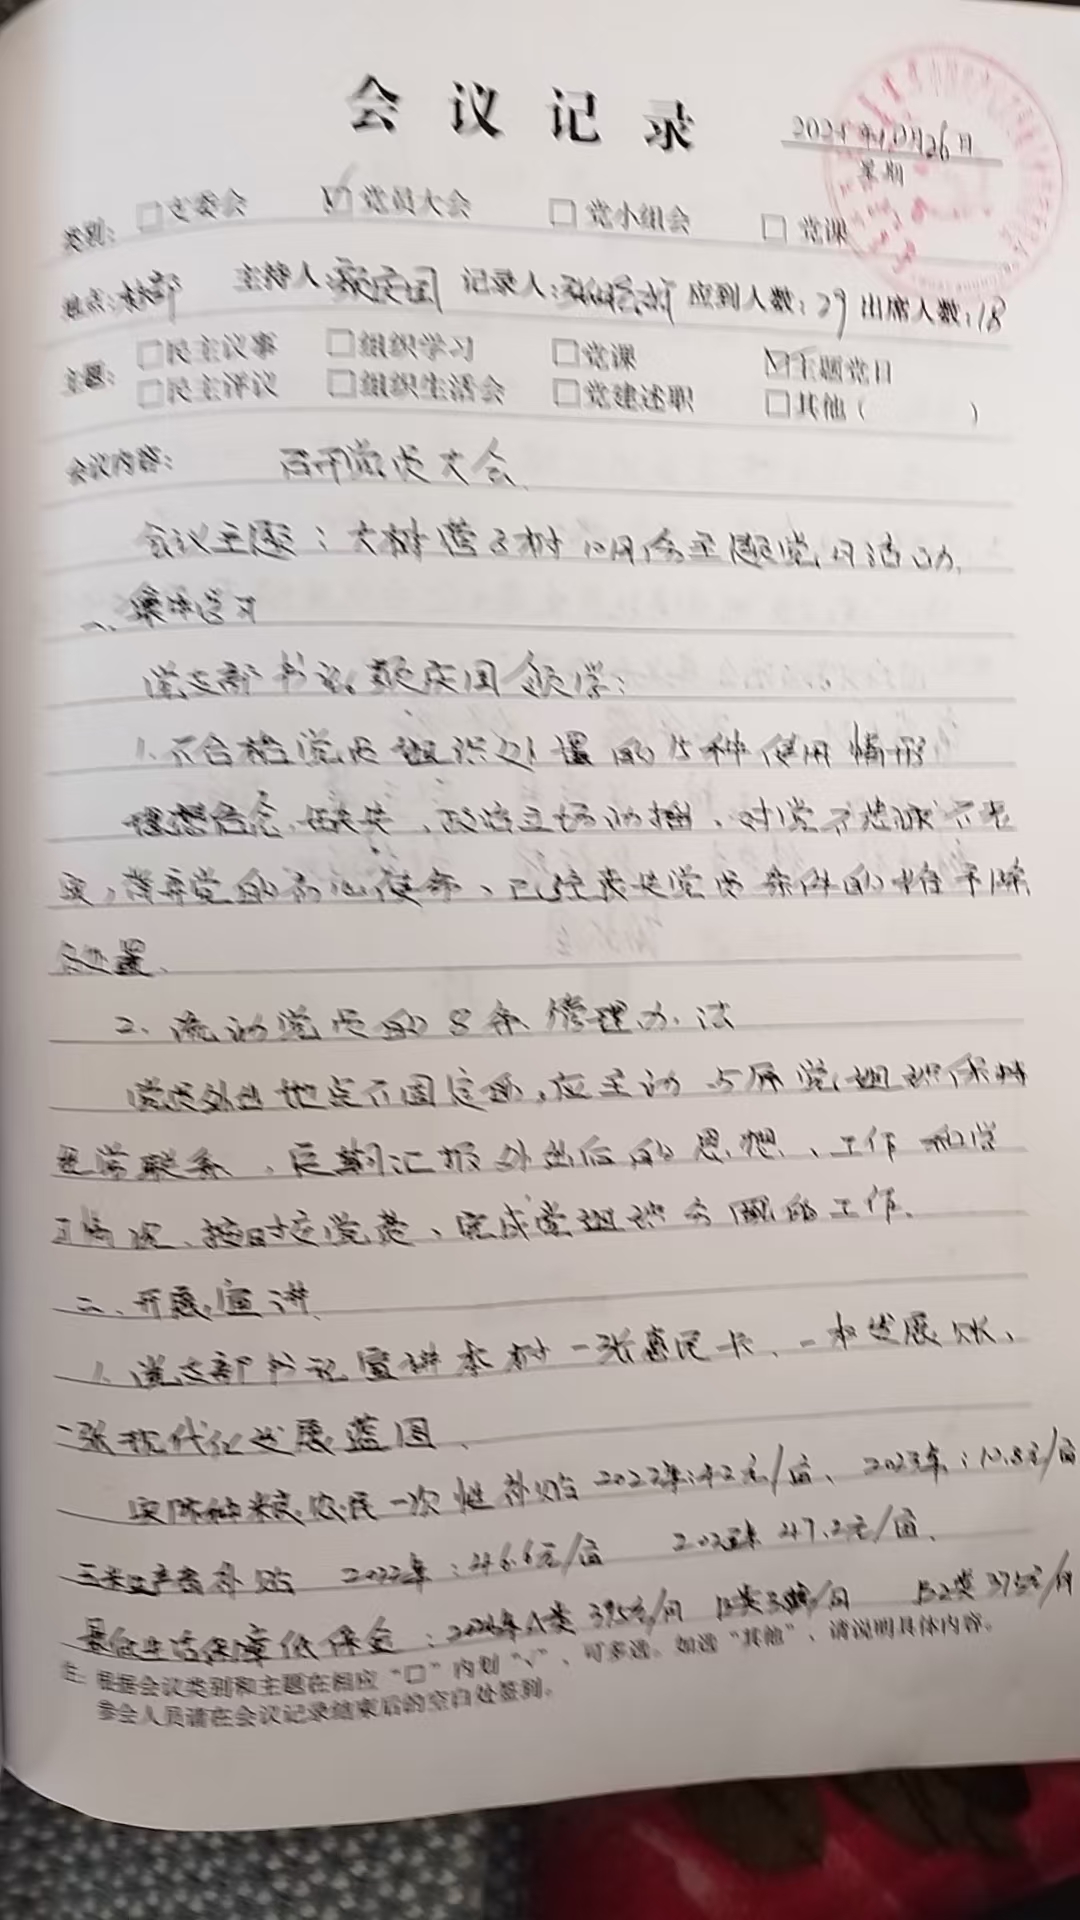 会议记录
年10月26日
星期
类别: □支委会 ☑党员大会 □党小组会 □党课
地点:村部 主持人: 庆国 记录人: 应到人数:29 出席人数:18
主题: □民主议事 □组织学习 □党课 ☑主题党日
□民主评议 □组织生活会 □党建述职 □其他( )
会议内容: 召开党员大会
会议主题:大树营子村10月份主题党日活动.
一、集中学习
党支部书记 庆国领学:
1.不合格党员组织处置的15种使用情形
理想信念缺失、政治立场动摇、对党不忠诚不老
实,背弃党的初心使命、已经丧失党员条件的 予除
名处置.
2、流动党员的8条管理办法
党员外出地点不固定的,应主动与原党组织保持
经常联系、定期汇报外出后的思想、工作和学
习情况、按时交党费、完成党组织分配的工作.
二、开展宣讲
1、党支部书记宣讲本村一张惠民卡、一本发展账、
一张现代化发展蓝图.
实际种粮农民一次性补贴2022年:42元/亩、2023年:10.8元/亩
产者补贴 2022年:46.6元/亩 47.2元/亩.
最低生活保障低保金: A类 395元/月 B2类375元/月
注: 根据会议类别和主题在相应“□”内划“√”、可多选。如选“其他”、请说明具体内容。
参会人员请在会议记录结束后的空白处签到。